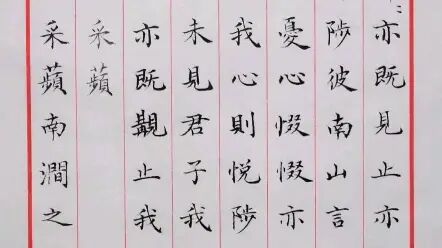 亦既見止亦
陟彼南山言
憂心惙惙亦
我心則悦陟
未見君子我
亦既覯止我
采蘋
采蘋南澗之